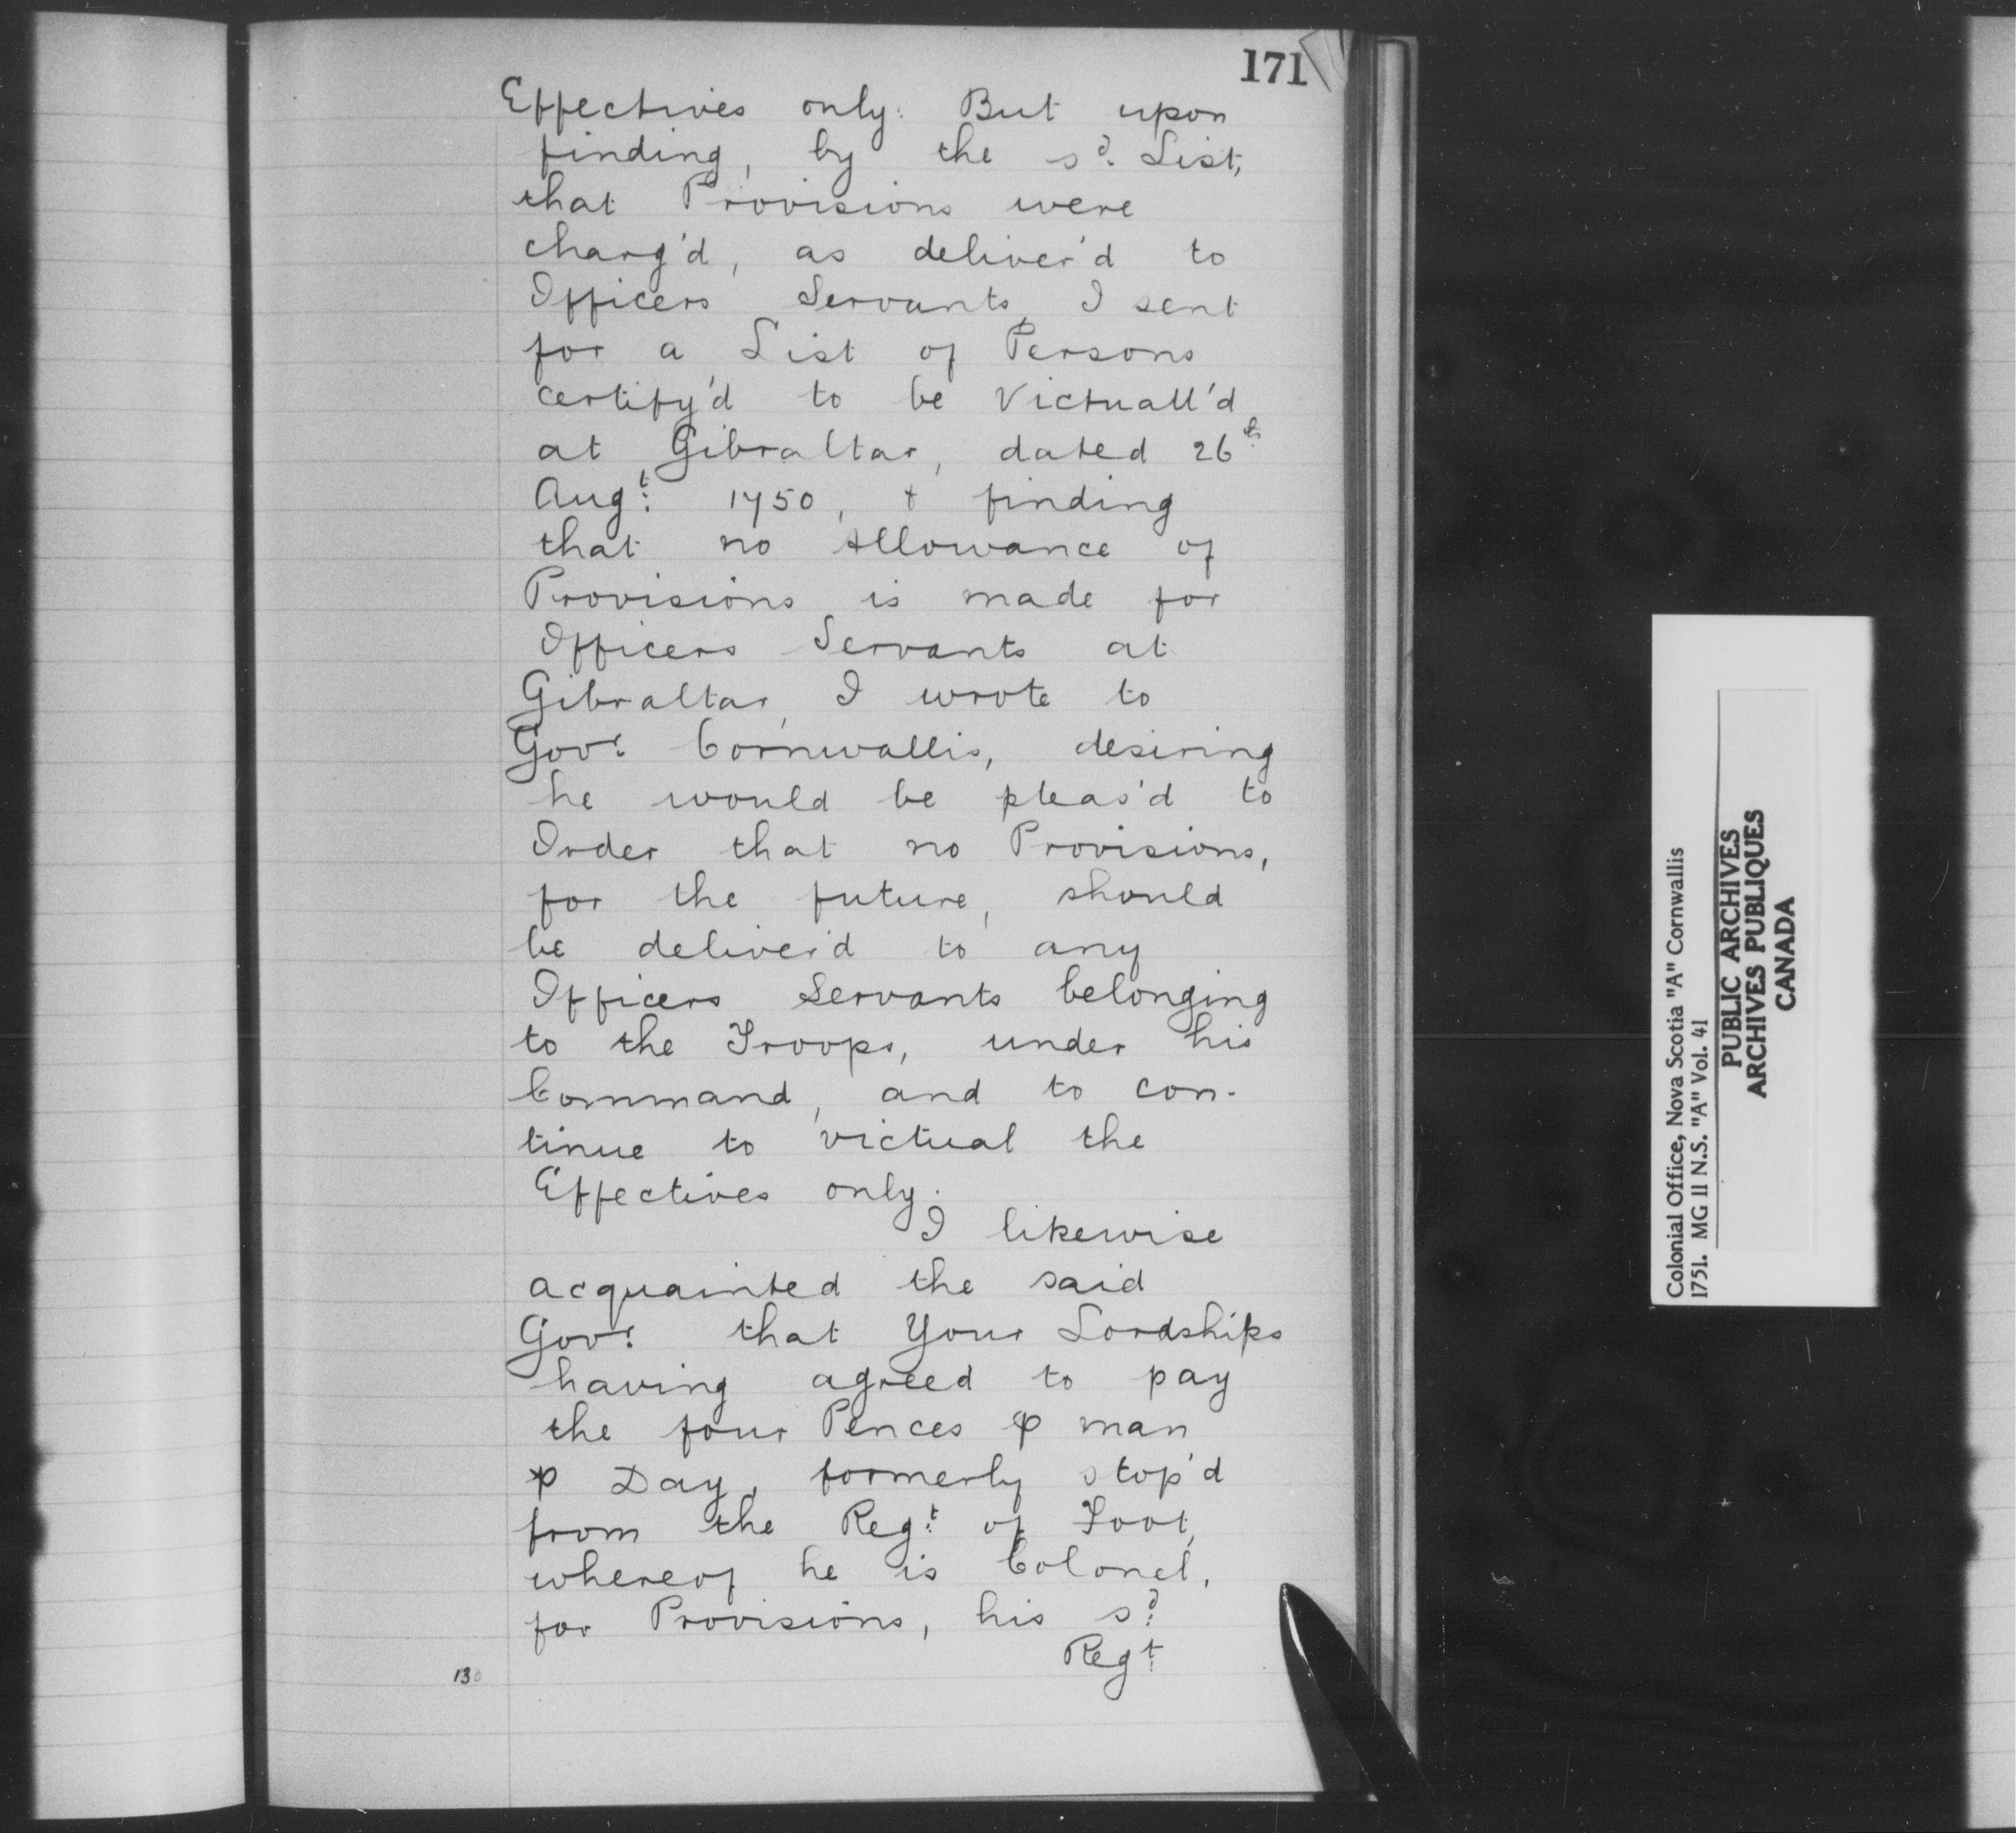 171
Effectives only: But upon
finding, by the sd. List,
that Provisions were
charg'd, as deliver'd to
Officers Servants, I sent
for a List of Persons
certify'd to be Victuall'd
at Gibraltar, dated 26th
Augt: 1750, & finding
that no Allowance of
Provisions is made for
Officers Servants at
Gibraltar, I wrote to
Govr: Cornwallis, desiring
he would be pleas'd to
Order that no Provisions,
for the future, should
be deliver'd to any
Officers Servants belonging
to the Troops, under his
Command, and to con-
tinue to victual the
Effectives only.
I likewise
acquainted the said
Govr: that Your Lordships
having agreed to pay
the four Pences ⅌ man
⅌ Day, formerly stop'd
from the Regt: of Foot,
whereof he is Colonel,
for Provisions, his sd:
Regt:
130
Colonial Office, Nova Scotia "A" Cornwallis
1751. MG 11 N.S. "A" Vol. 41
PUBLIC ARCHIVES
ARCHIVES PUBLIQUES
CANADA